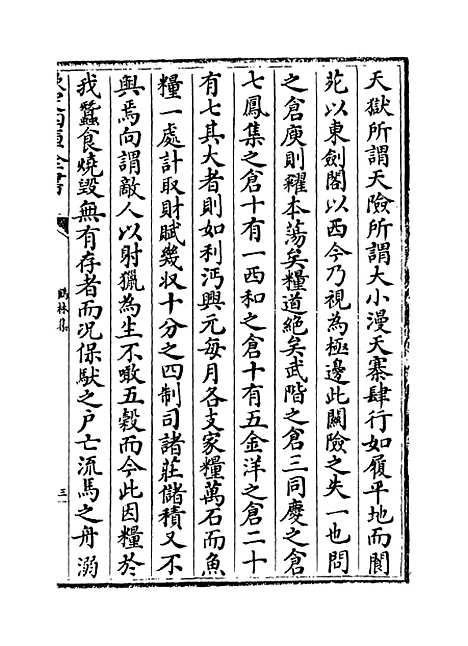 天獄所謂天險所謂大小漫天寨肆行如履平地而閬
苑以東劍閣以西今乃視為極邊此關險之失一也問
之倉庾則糴本蕩矣糧道絕矣武階之倉三同慶之倉
七鳳集之倉十有一西和之倉十有五金洋之倉二十
有七其大者則如利沔興元每月各支家糧萬石而魚
糧一處計取財賦幾收十分之四制司諸莊儲積又不
與焉向謂敵人以射獵為生不噉五穀而今此因糧於
我蠶食燒毀無有存者而況保馱之户亡流馬之舟溺
欽定四庫全書
鶴林集
三